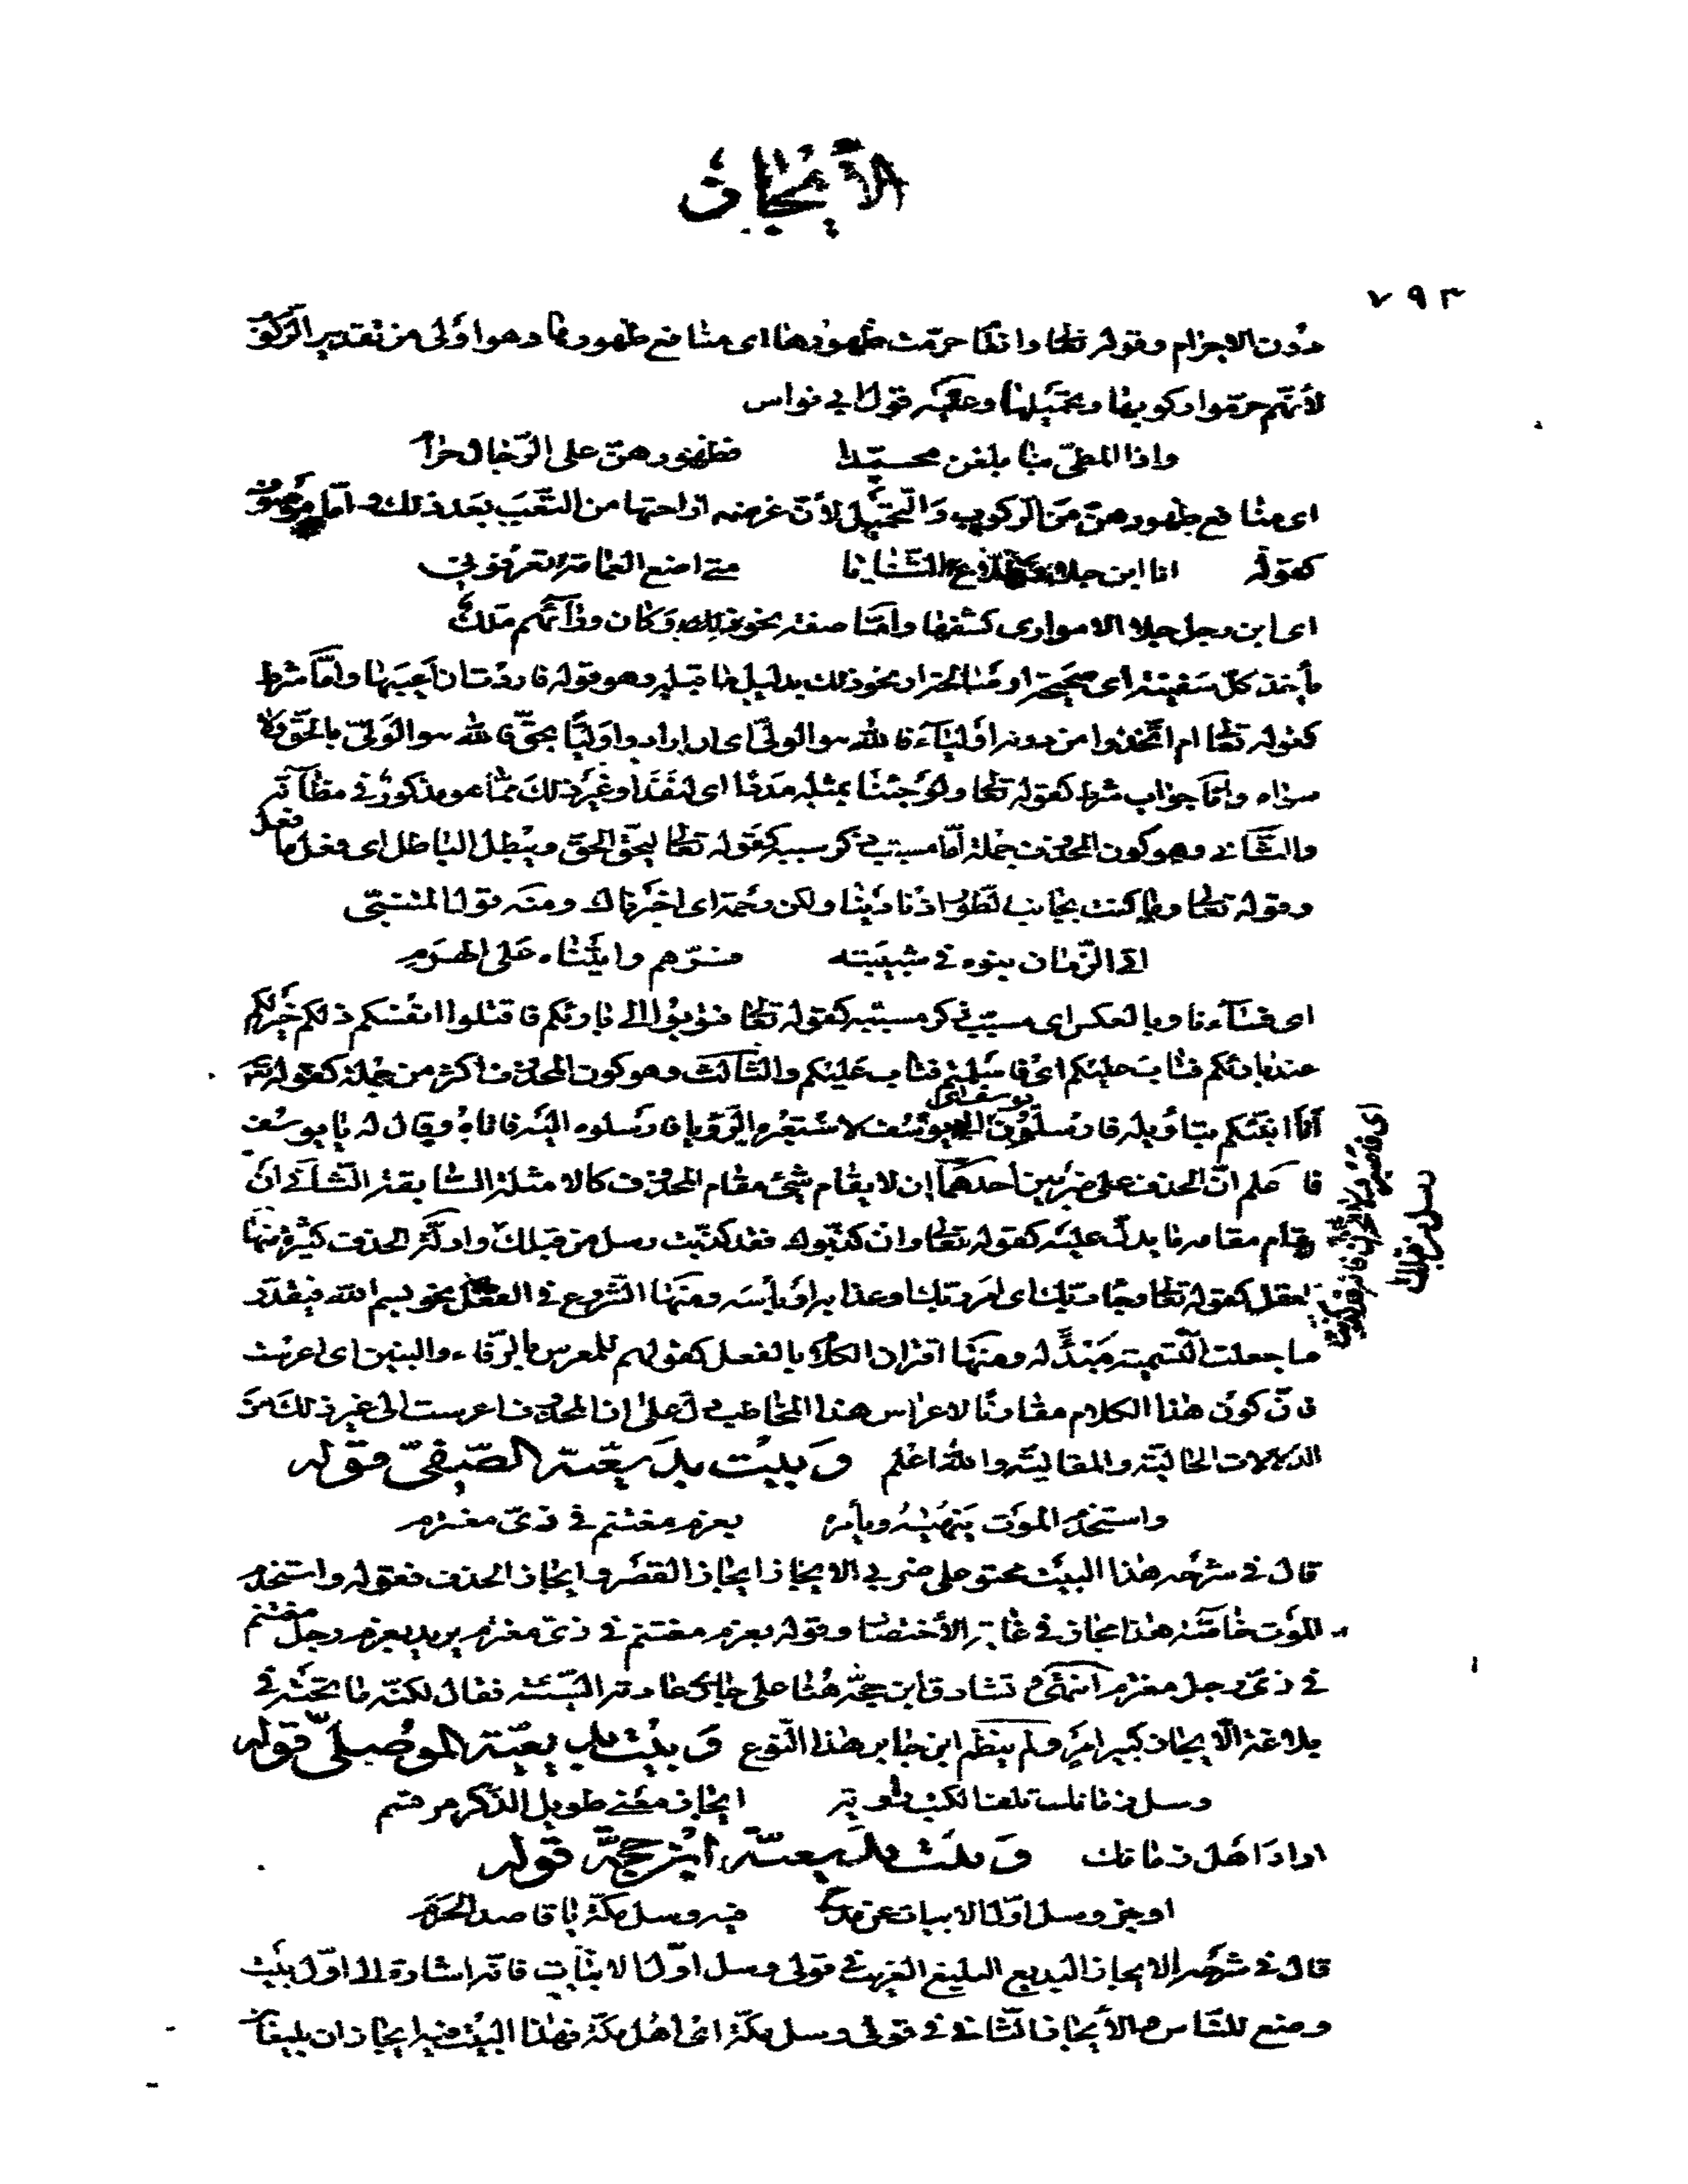 الايجاز
٧٩٣
دون الاجرام وقوله تعالى وانعام حرمت ظهورها اى منافع ظهورها وهو اولى من تقدير الركوب
لأنهم حرموا ركوبها وتحميلها وعليه قول ابي نواس
واذا المطي بنا بلغن محمدا فظهورهن على الرجال حرام
اى منافع ظهورهن من الركوب والتحميل لأن غرضه اراحتها من التعب بعد ذلك واما موصوف
كقوله انا ابن جلا وطلاع الثنايا متى اضع العمامة تعرفوني
اى ابن رجل جلا الامور اى كشفها واما صفة نحو قوله وكان ورآئهم ملك
يأخذ كل سفينة اى صحيحة او نحو ذلك بدليل ما قبله وهو قوله فاردت ان اعيبها واما شرط
كقوله تعالى ام اتخذوا من دونه اوليآء فالله هو الولى اى ان ارادوا وليا بحق فالله هو الولى بالحق ولا
سواه واما جواب شرط كقوله تعالى ولو جئنا بمثله مددا اى لنفد او غير ذلك مما هو مذكور في مظآنه
والثاني وهو كون المحذوف جملة اما مسبب ذكر سببه كقوله تعالى ليحق الحق ويبطل الباطل اى فعل ما فعل
وقوله تعالى وما كنت بجانب الطور اذ نادينا ولكن رحمة اى اخترناك ومنه قول المتنبى
اتى الزمان بنوه في شبيبته فسرهم واتيناه على الهرم
اى فسآءنا وبالعكس اى سبب ذكر مسببه كقوله تعالى فتوبوا الى بارئكم فاقتلوا انفسكم ذلكم خير لكم
عند بارئكم فتاب عليكم اى فامتثلتم فتاب عليكم والثالث وهو كون المحذوف اكثر من جملة كقوله تعالى
انا انبئكم بتأويله فارسلون يوسف اى الى يوسف لاستعبره الرؤيا فارسلوه اليه فاتاه وقال له يا يوسف
فاعلم ان الحذف على ضربين احدهما ان لا يقام شيء مقام المحذوف كالامثلة السابقة الثاني ان
يقام مقامه ما يدل عليه كقوله تعالى وان كذبوك فقد كذبت رسل من قبلك وادلة الحذف كثيرة منها
العقل كقوله تعالى وجآء ربك اى امر ربك او عذابه او بأسه ومنها الشروع في الفعل نحو بسم الله فيقدر
ما جعلت التسمية مبدأ له ومنها اقتران الكلام بالفعل كقولهم للمعرس بالرفاء والبنين اى اعرست
فان كون هذا الكلام مقارنا لاعراس هذا المخاطب دل على ان المحذوف اعرست الى غير ذلك من
الدلالات الحالية والمقالية والله اعلم وبيت بديعية الصفي قوله
واستخدم الموت ينهيه ويأمره بعزم مغتنم في زي مغترم
قال في شرحه هذا البيت محتو على ضربى الايجاز ايجاز القصر وايجاز الحذف فقوله واستخدم
الموت خاصة هذا مجاز في غاية الأختصار وقوله بعزم مغتنم في زي مغترم يريد بعزم رجل مغتنم
في زي رجل مغترم انتهى تشادق ابن حجة هنا على جارى عادته السيئة فقال لكنه ما تحته في
بلاغة الايجاز كبير امر ولم ينظم ابن جابر هذا النوع وبيت بديعية الموصلي قوله
وسل زمانك تلف الكتب ايجاز معنى طويل الذكر مرهم
اراد اهل زمانك وبيت بديعية ابن حجة قوله
اوجز وسل اول الابيات عن فيه وسل مكة يا قاصد الحرم
قال في شرحه الايجاز البديع البليغ الغريب في قولى وسل اول الابيات فانه اشارة الى اول بيت
وضع للناس والأيجاز الثاني في قولى وسل مكة اى اهل مكة فهذا البيت فيه ايجازان بليغان
اى فاصبر ولا تحزن فانه قد كذبت
رسل من قبلك